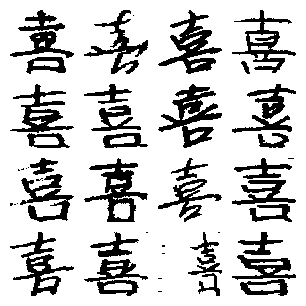 喜喜喜喜
喜喜喜喜
喜喜喜喜
喜喜喜喜